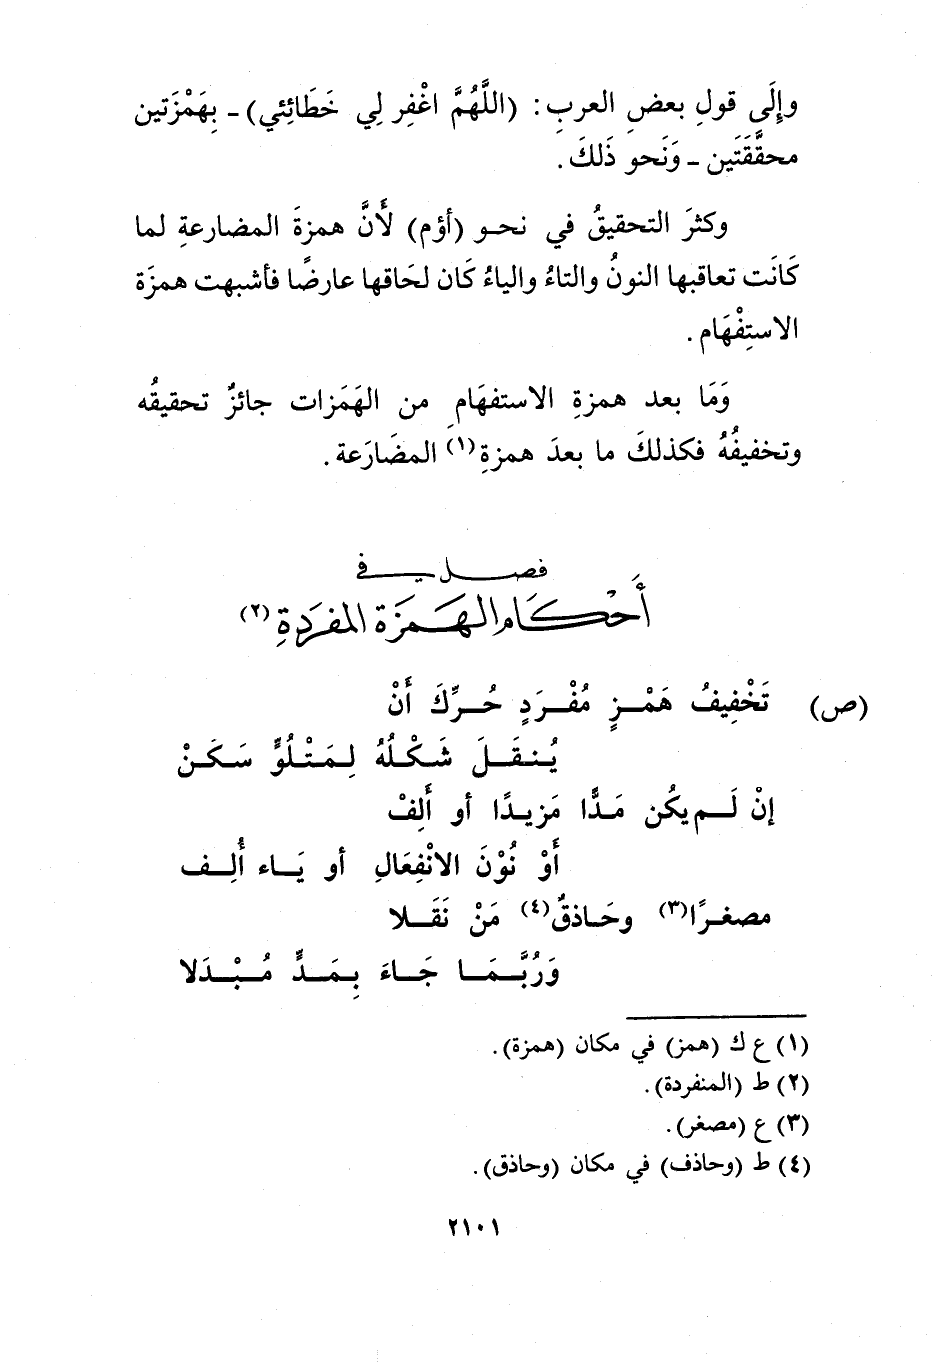 وإلَى قولِ بعضِ العربِ: (اللَّهُمَّ اغْفِر لِي خَطَائِئي) - بِهَمْزَتين
محقَّقَتَين - وَنَحو ذَلكَ.
وكثرَ التحقيقُ في نحو (أؤم) لأَنَّ همزةَ المضارعةِ لما
كَانَت تعاقبها النونُ والتاءُ والياءُ كَان لحَاقها عارضًا فأشبهت همزَة
الاستِفْهَام.
وَمَا بعد همزةِ الاستفهَامِ من الهَمَزات جائزٌ تحقيقُه
وتخفيفُهُ فكذلكَ ما بعدَ همزةِ(١) المضَارَعة.
فصل في
أَحْكَام الهَمزَة المفرَدةِ(٢)
(ص) تَخْفِيفُ هَمْزٍ مُفْرَدٍ حُرِّكَ أَنْ
يُنقَلَ شَكْلُهُ لِمَتْلُوٍّ سَكَنْ
إنْ لَم يكُن مَدًّا مَزيدًا أو أَلِفْ
أَوْ نُوْنَ الانْفِعَالِ أو يَاء أُلِف
مصغرًا(٣) وحَاذقٌ(٤) مَنْ نَقَلا
وَرُبَّمَا جَاءَ بِمَدٍّ مُبْدَلا
(١) ع ك (همز) في مكان (همزة).
(٢) ط (المنفردة).
(٣) ع (مصغر).
(٤) ط (وحاذف) في مكان (وحاذق).
٢١٠١